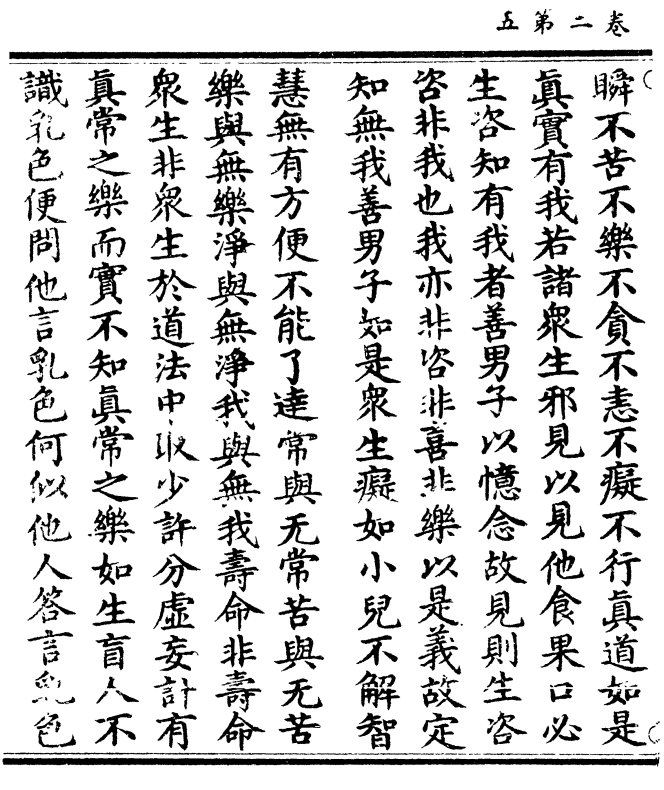 卷二第五
瞬不苦不樂不貪不恚不癡不行眞道如是
眞實有我若諸衆生邪見以見他食果口必
生咨知有我者善男子以憶念故見則生咨
咨非我也我亦非咨非喜非樂以是義故定
知無我善男子如是衆生癡如小兒不解智
慧無有方便不能了達常與无常苦與无苦
樂與無樂淨與無淨我與無我壽命非壽命
衆生非衆生於道法中取少許分虛妄計有
眞常之樂而實不知眞常之樂如生盲人不
識乳色便問他言乳色何似他人答言乳色